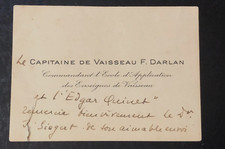 Le CAPITAINE DE VAISSEAU F. DARLAN
Commandant l'Ecole d'Application
des Enseignes de Vaisseau
et l'"Edgar Quinet"
remercie sincèrement le Dr
Siegret de son aimable envoi